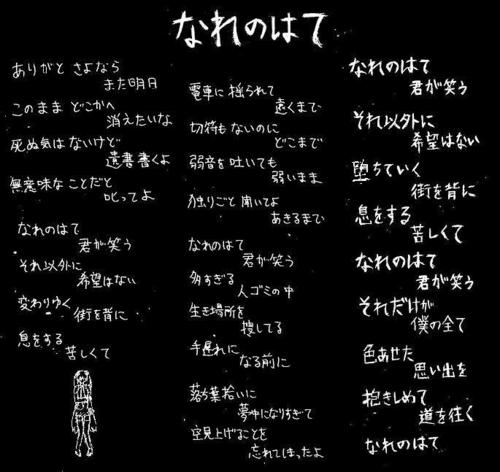 なれのはて
ありがと さよなら
また明日
このまま どこかへ
消えたいな
死ぬ気は ないけど
遺書書くよ
無意味な ことだと
叱ってよ
なれのはて
君が笑う
それ以外に
希望はない
変わりゆく
街を背に
息をする
苦しくて
電車に 揺られて
遠くまで
切符も ないのに
どこまで
弱音を 吐いても
弱いまま
独りごと 聞いてよ
あきるまで
なれのはて
君が笑う
多すぎる
人ゴミの中
生き場所を
捜してる
手遅れに
なる前に
落ち葉拾いに
夢中になりすぎて
空見上げることを
忘れてしまったよ
なれのはて
君が笑う
それ以外に
希望はない
堕ちていく
街を背に
息をする
苦しくて
なれのはて
君が笑う
それだけが
僕の全て
色あせた
思い出を
抱きしめて
道を往く
なれのはて